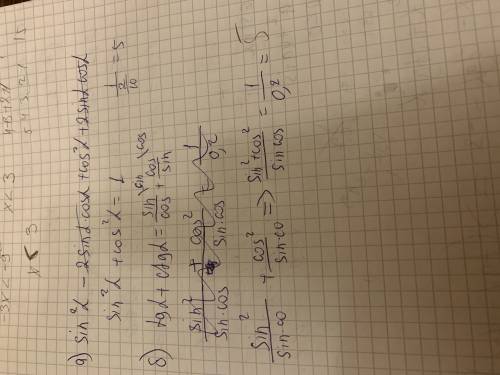 x < 3
x < 3
а) sin²α − 2sinα·cosα + cos²α + 2sinα·cosα
sin²α + cos²α = 1
б) tgα + ctgα = sin/cos + cos/sin
1/(2/10) = 5
sin²/(sin·cos) + cos²/(sin·cos) = 1/0,2
sin²/(sin·co) + cos²/(sin·co) => (sin²+cos²)/(sin cos) = 1/0,2 = 5